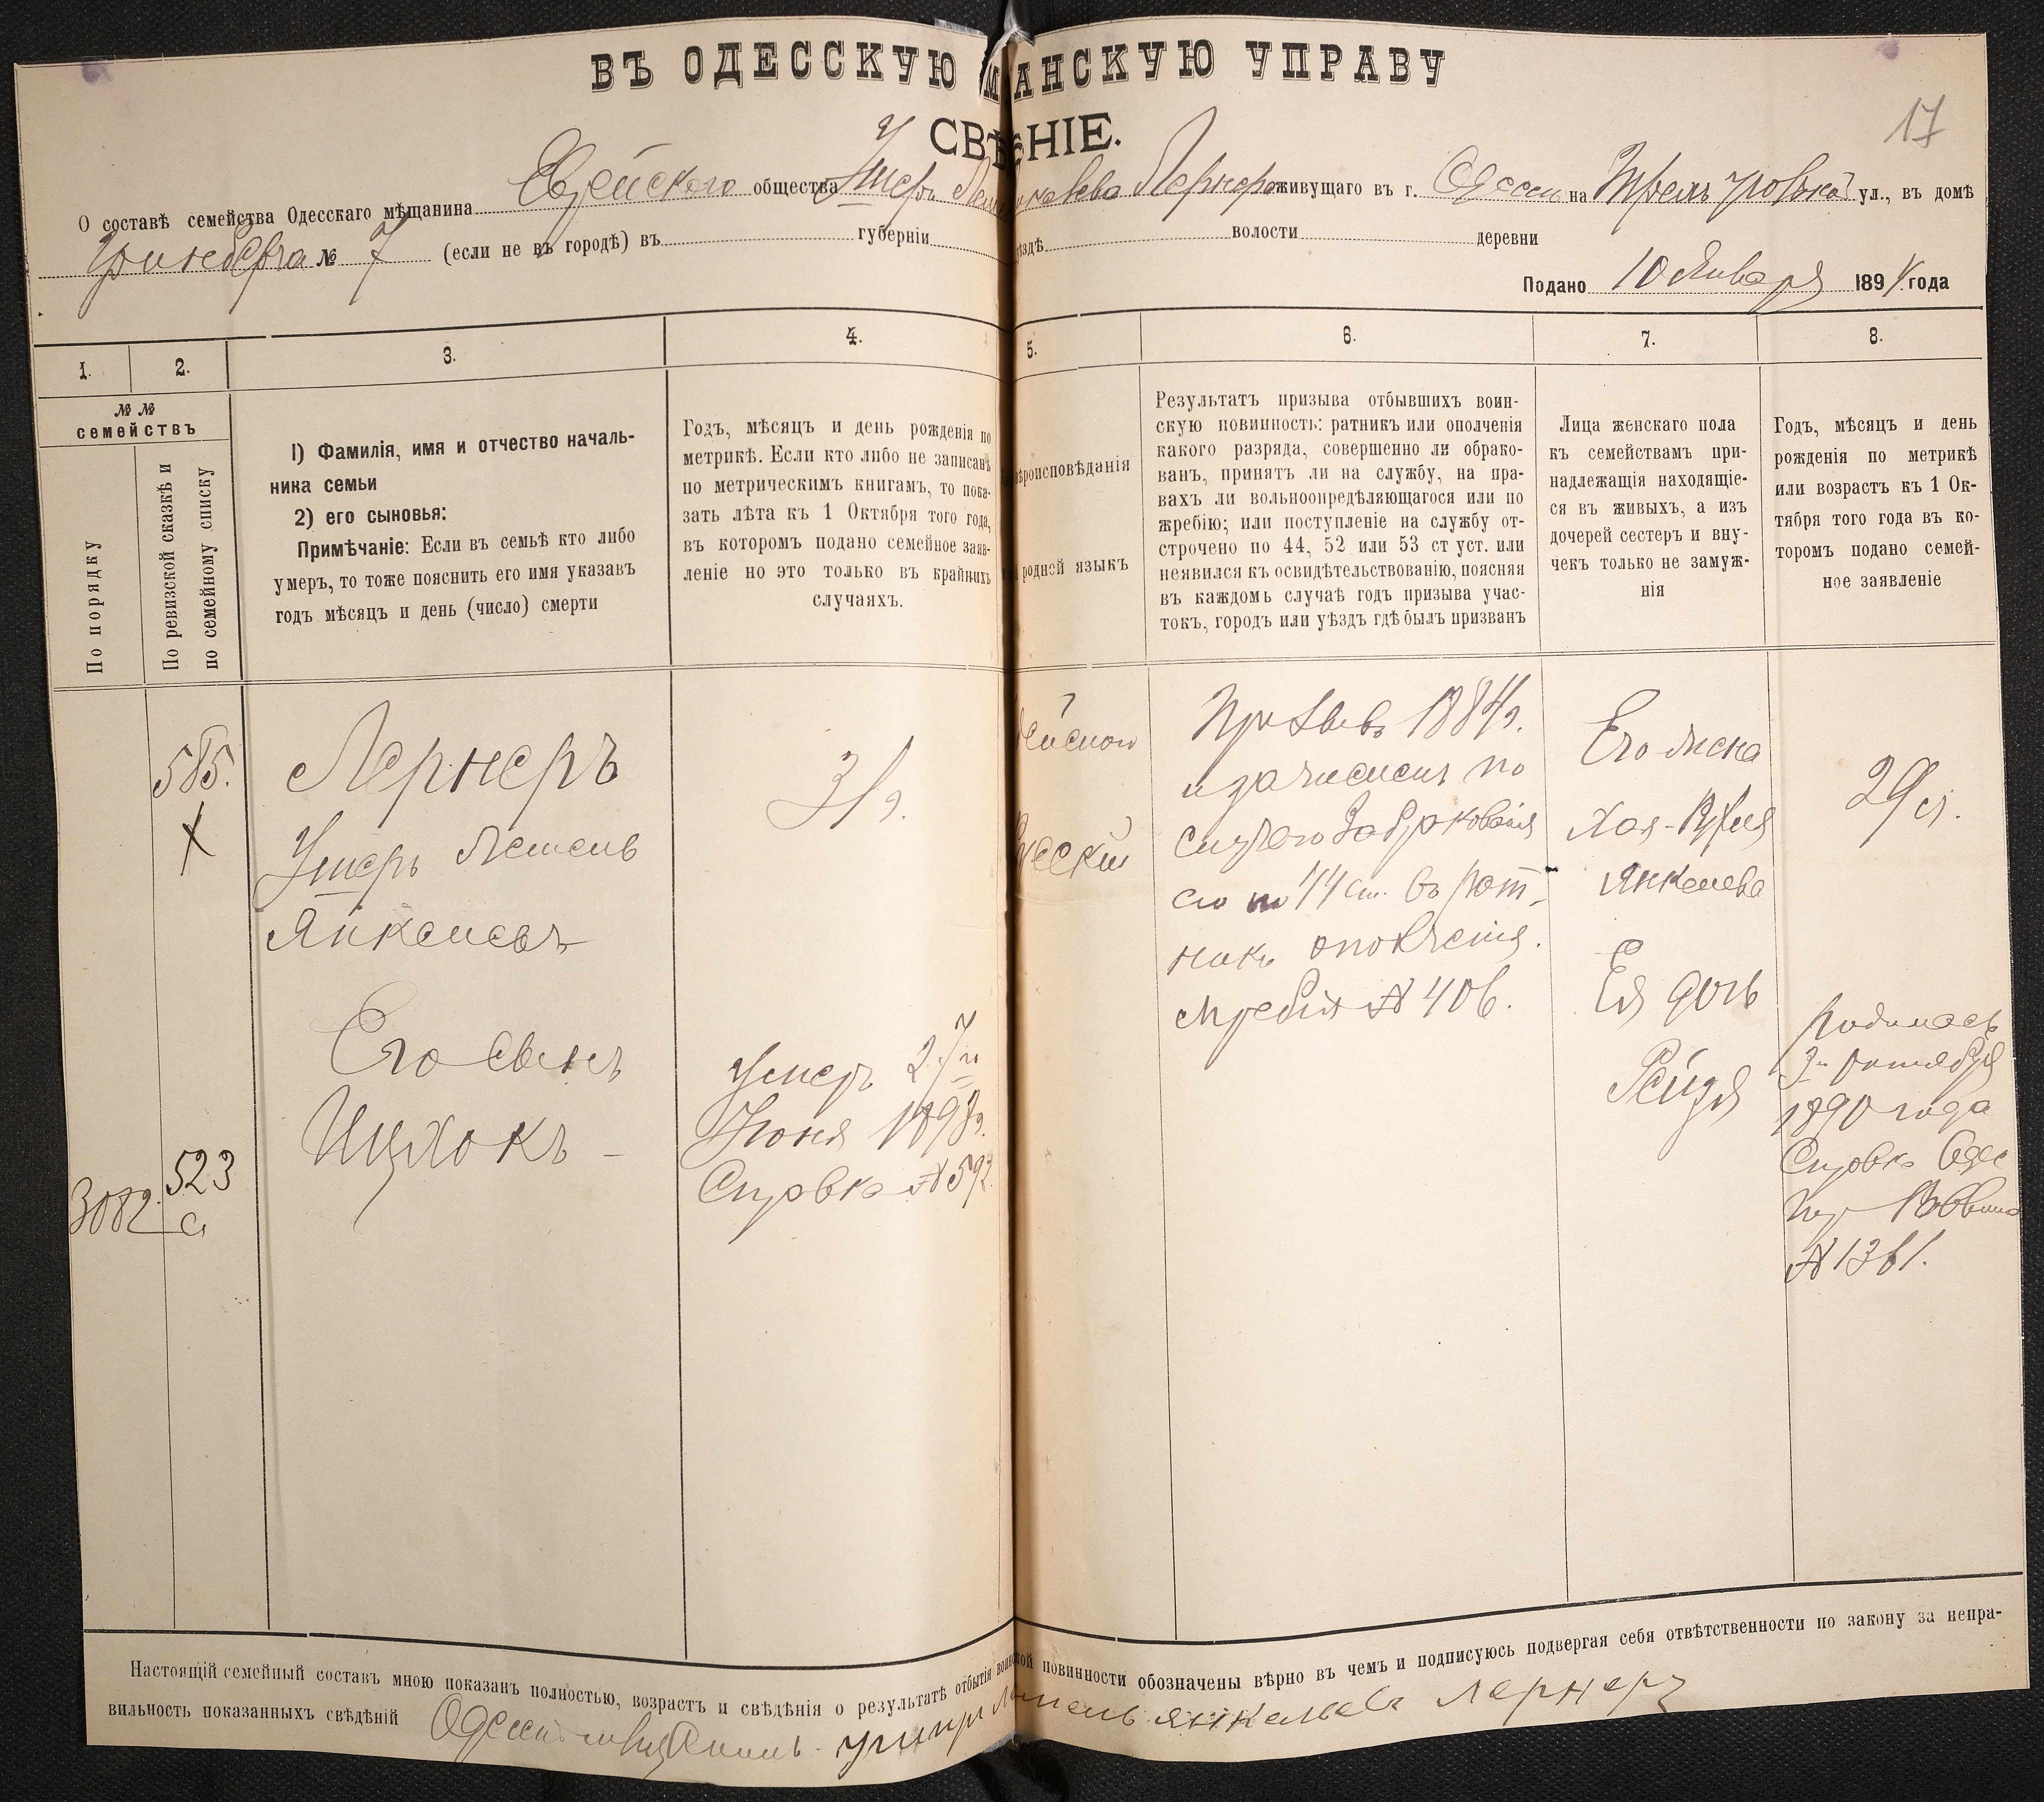 ВЪ ОДЕССКУЮ М АНСКУЮ УПРАВУ
СВѢ НІЕ.
17
О составѣ семейства Одесскаго мѣщанина Еврейского общества Ушеръ Лернера живущаго въ г. Одессѣ на ул., въ домѣ
Гринберга № 7 (если не въ городѣ) въ губерніи ѣздѣ волости деревни
Подано 10 Января 189 года
1.
2.
3.
4.
5.
6.
7.
8.
№ №
семействъ
По порядку
По ревизской сказкѣ и
по семейному списку
1) Фамилія, имя и отчество началь-
ника семьи
2) его сыновья:
Примѣчаніе: Если въ семьѣ кто либо
умеръ, то тоже пояснить его имя указавъ
годъ мѣсяцъ и день (число) смерти
Годъ, мѣсяцъ и день рожденія по
метрикѣ. Если кто либо не записанъ
по метрическимъ книгамъ, то пока-
зать лѣта къ 1 Октября того года,
въ которомъ подано семейное заяв-
леніе но это только въ крайнихъ
случаяхъ.
ѣроисповѣданія
родной языкъ
Результатъ призыва отбывшихъ воин-
скую повинность: ратникъ или ополченія
какого разряда, совершенно ли обрако-
ванъ, принятъ ли на службу, на пра-
вахъ ли вольноопредѣляющагося или по
жребію; или поступленіе на службу от-
строчено по 44, 52 или 53 ст уст. или
неявился къ освидѣтельствованію, поясняя
въ каждомъ случаѣ годъ призыва учас-
токъ, городъ или уѣздъ гдѣ былъ призванъ
Лица женскаго пола
къ семействамъ при-
надлежащія находящіе-
ся въ живыхъ, а изъ
дочерей сестеръ и вну-
чекъ только не замуж-
нія
Годъ, мѣсяцъ и день
рожденія по метрикѣ
или возрастъ къ 1 Ок-
тября того года въ ко-
торомъ подано семей-
ное заявленіе
585.
X
Лернеръ
Ушеръ Лемель
Янкелевъ
Его сынъ
Ицхокъ -
3082
523
а
31 г.
Умеръ 27го
Іюня
Справка № 592
ейского
сский
Призыва 1884 г.
и зачисленъ по
случаю
по 44 ст. въ рат-
никъ ополченія.
жребія № 406.
Его жена
Хая-
Янкелева
Ея дочь
Рейзя
29 л.
Родилась
Октября
1890 года
Справка Одес
Раввина
№ 1361.
Настоящій семейный составъ мною показанъ полностью, возрастъ и свѣдѣнія о результатѣ отбытія воинской повинности обозначены вѣрно въ чемъ и подписуюсь подвергая себя отвѣтственности по закону за непра-
вильность показанныхъ свѣдѣній Одесскій мѣщанинъ Ушеръ Лемель Янкелевъ Лернеръ